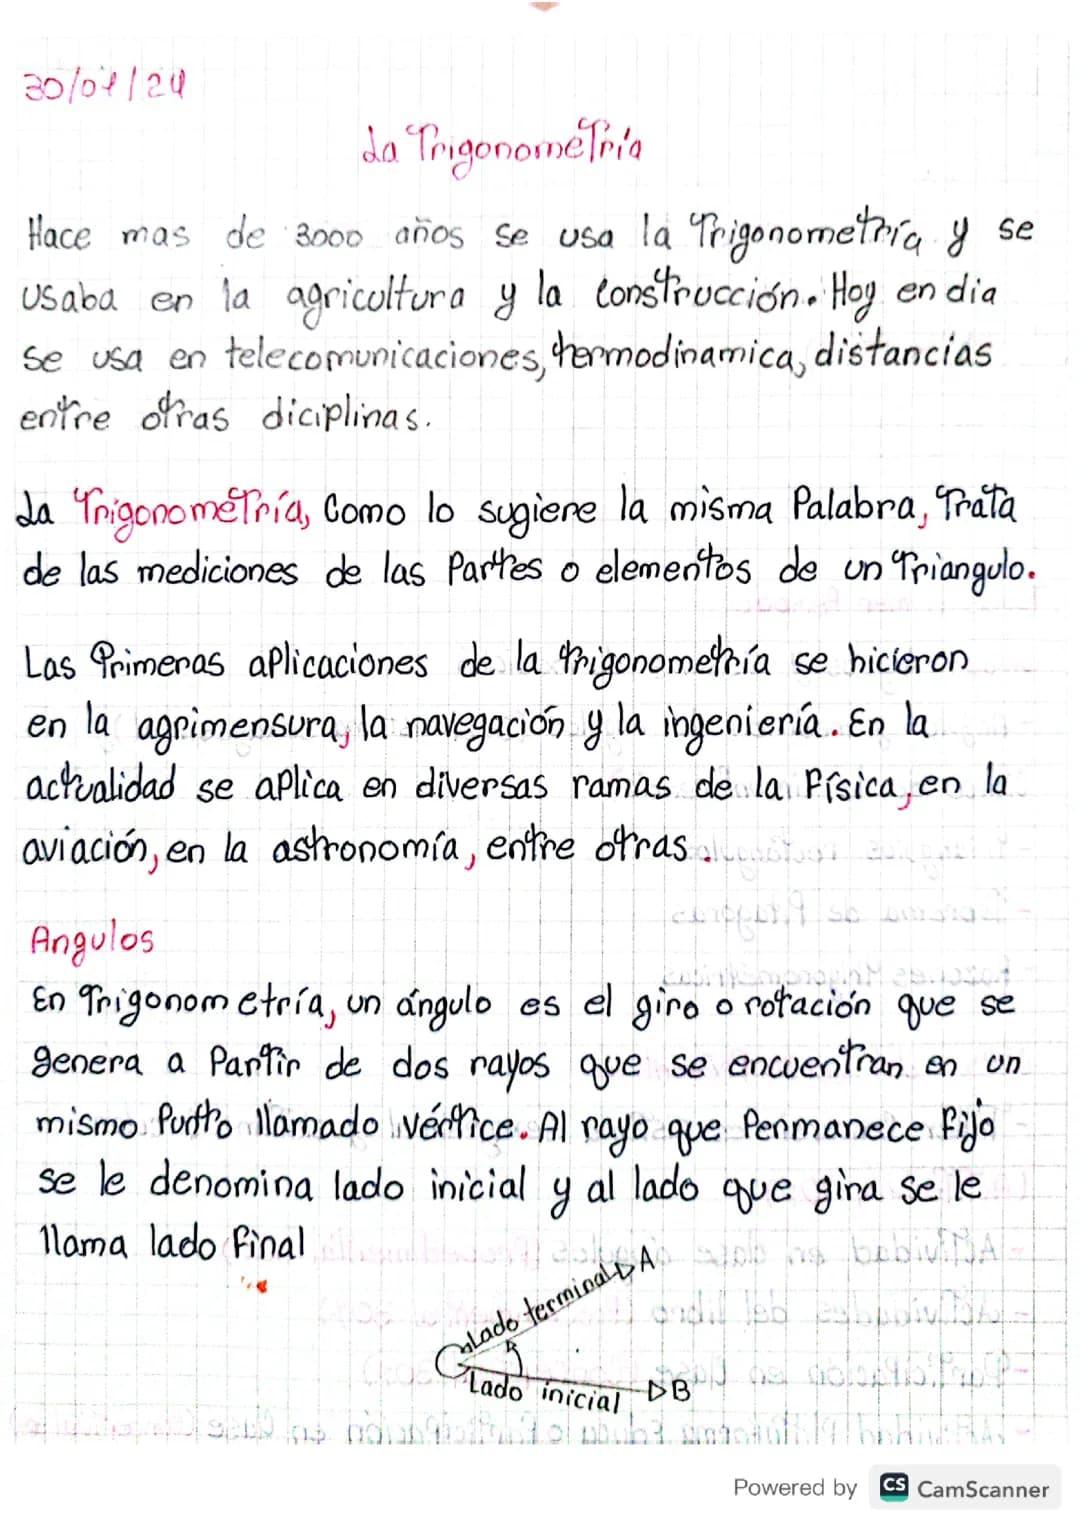 30/01/24
La Trigonometría
Hace mas de 3000 años se usa la Trigonometría y se
usaba en la agricultura y la construcción. Hoy en dia
se usa en telecomunicaciones, termodinamica, distancias
entre otras diciplinas.
La Trigonometría, Como lo sugiere la misma Palabra, Trata
de las mediciones de las Partes o elementos de un Triangulo.
Las Primeras aplicaciones de la trigonometría se hicieron
en la agrimensura, la navegación y la ingeniería. En la
actualidad se aplica en diversas ramas de la Física, en la
aviación, en la astronomía, entre otras.
Angulos
En Trigonometría, un ángulo es el giro o rotación que se
genera a Partir de dos rayos que se encuentran en un
mismo Punto llamado vértice. Al rayo que Permanece Fijo
se le denomina lado inicial y al lado que gira se le
llama lado Final
Lado terminal A
Lado inicial B
Powered by CS CamScanner